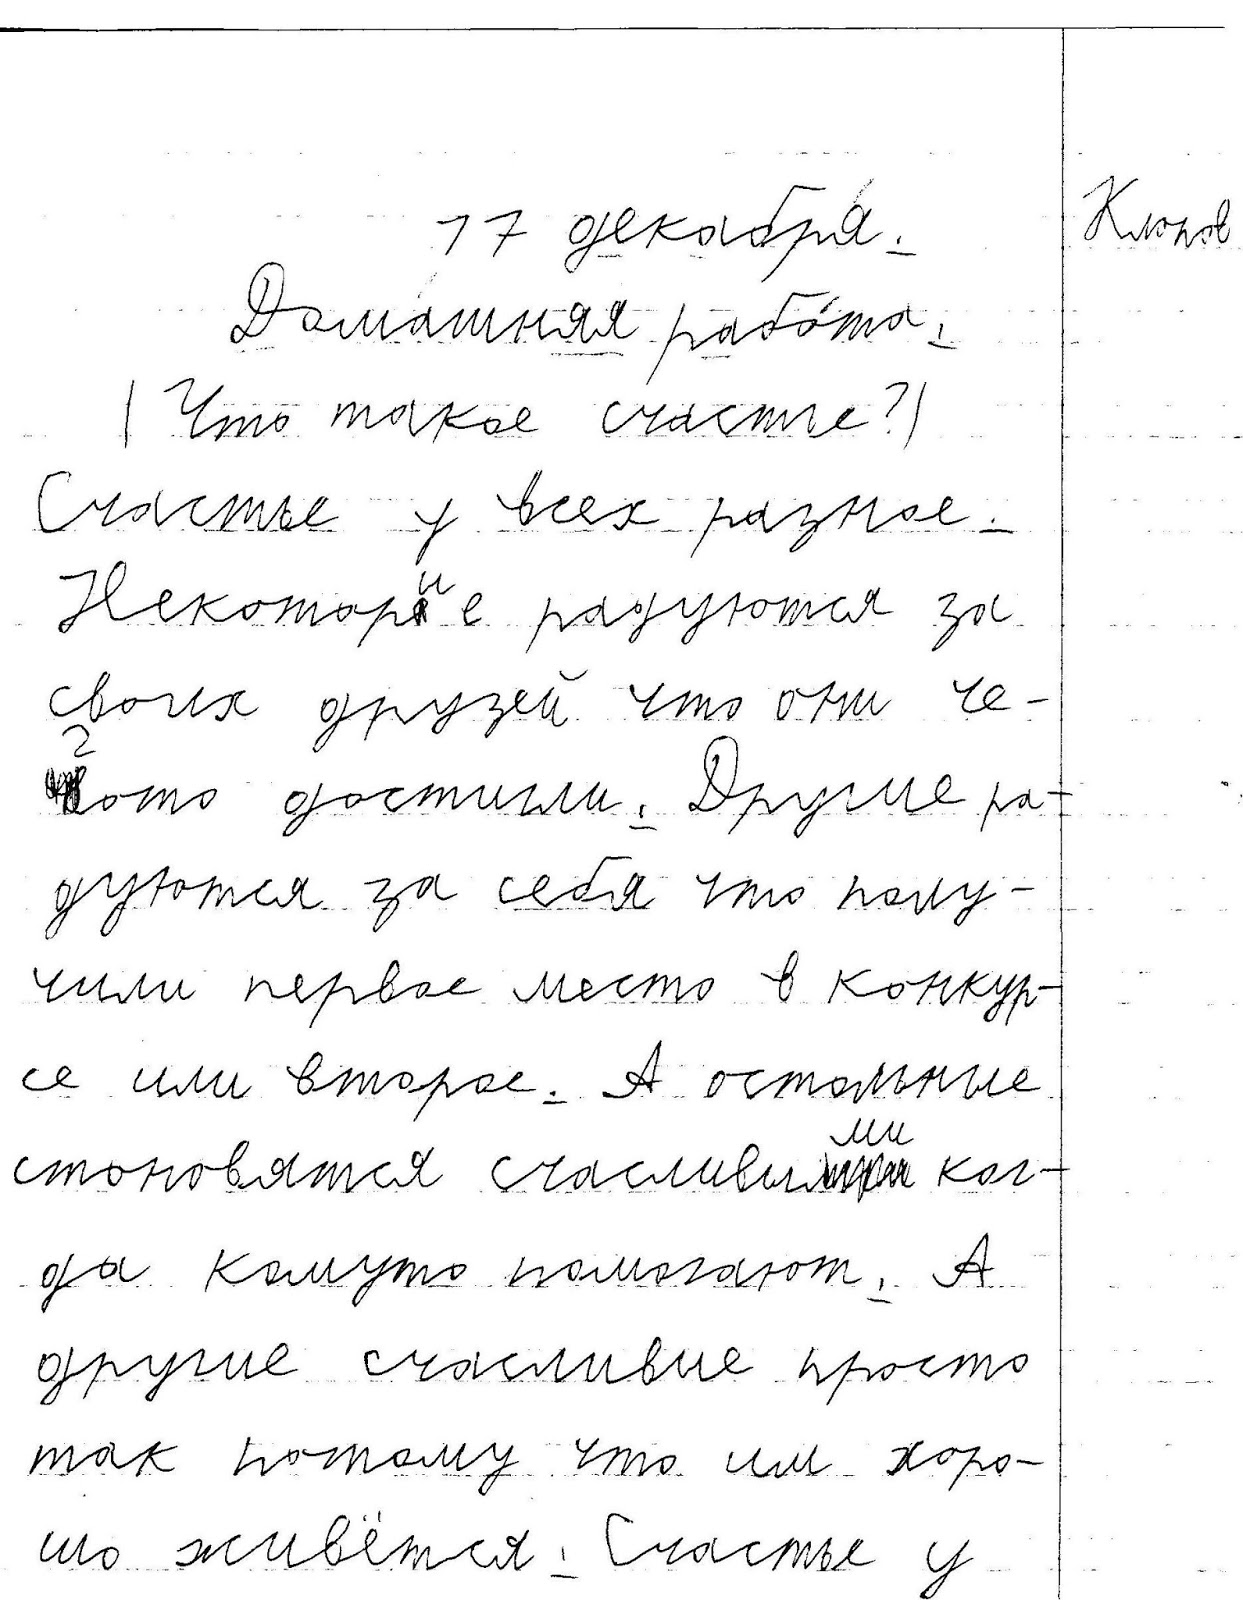 17 декабря.
Домашняя работа.
(Что такое счастье?)
Счастье у всех разное.
Некоторие радуются за
своих друзей что они че-
гото достигли. Другие ра-
дуются за себя что полу-
чили первое место в конкур-
се или второе. А остольные
становятся счасливыми ког-
да комуто помогают. А
другие счасливые просто
так потому что им хоро-
шо живётся. Счастье у